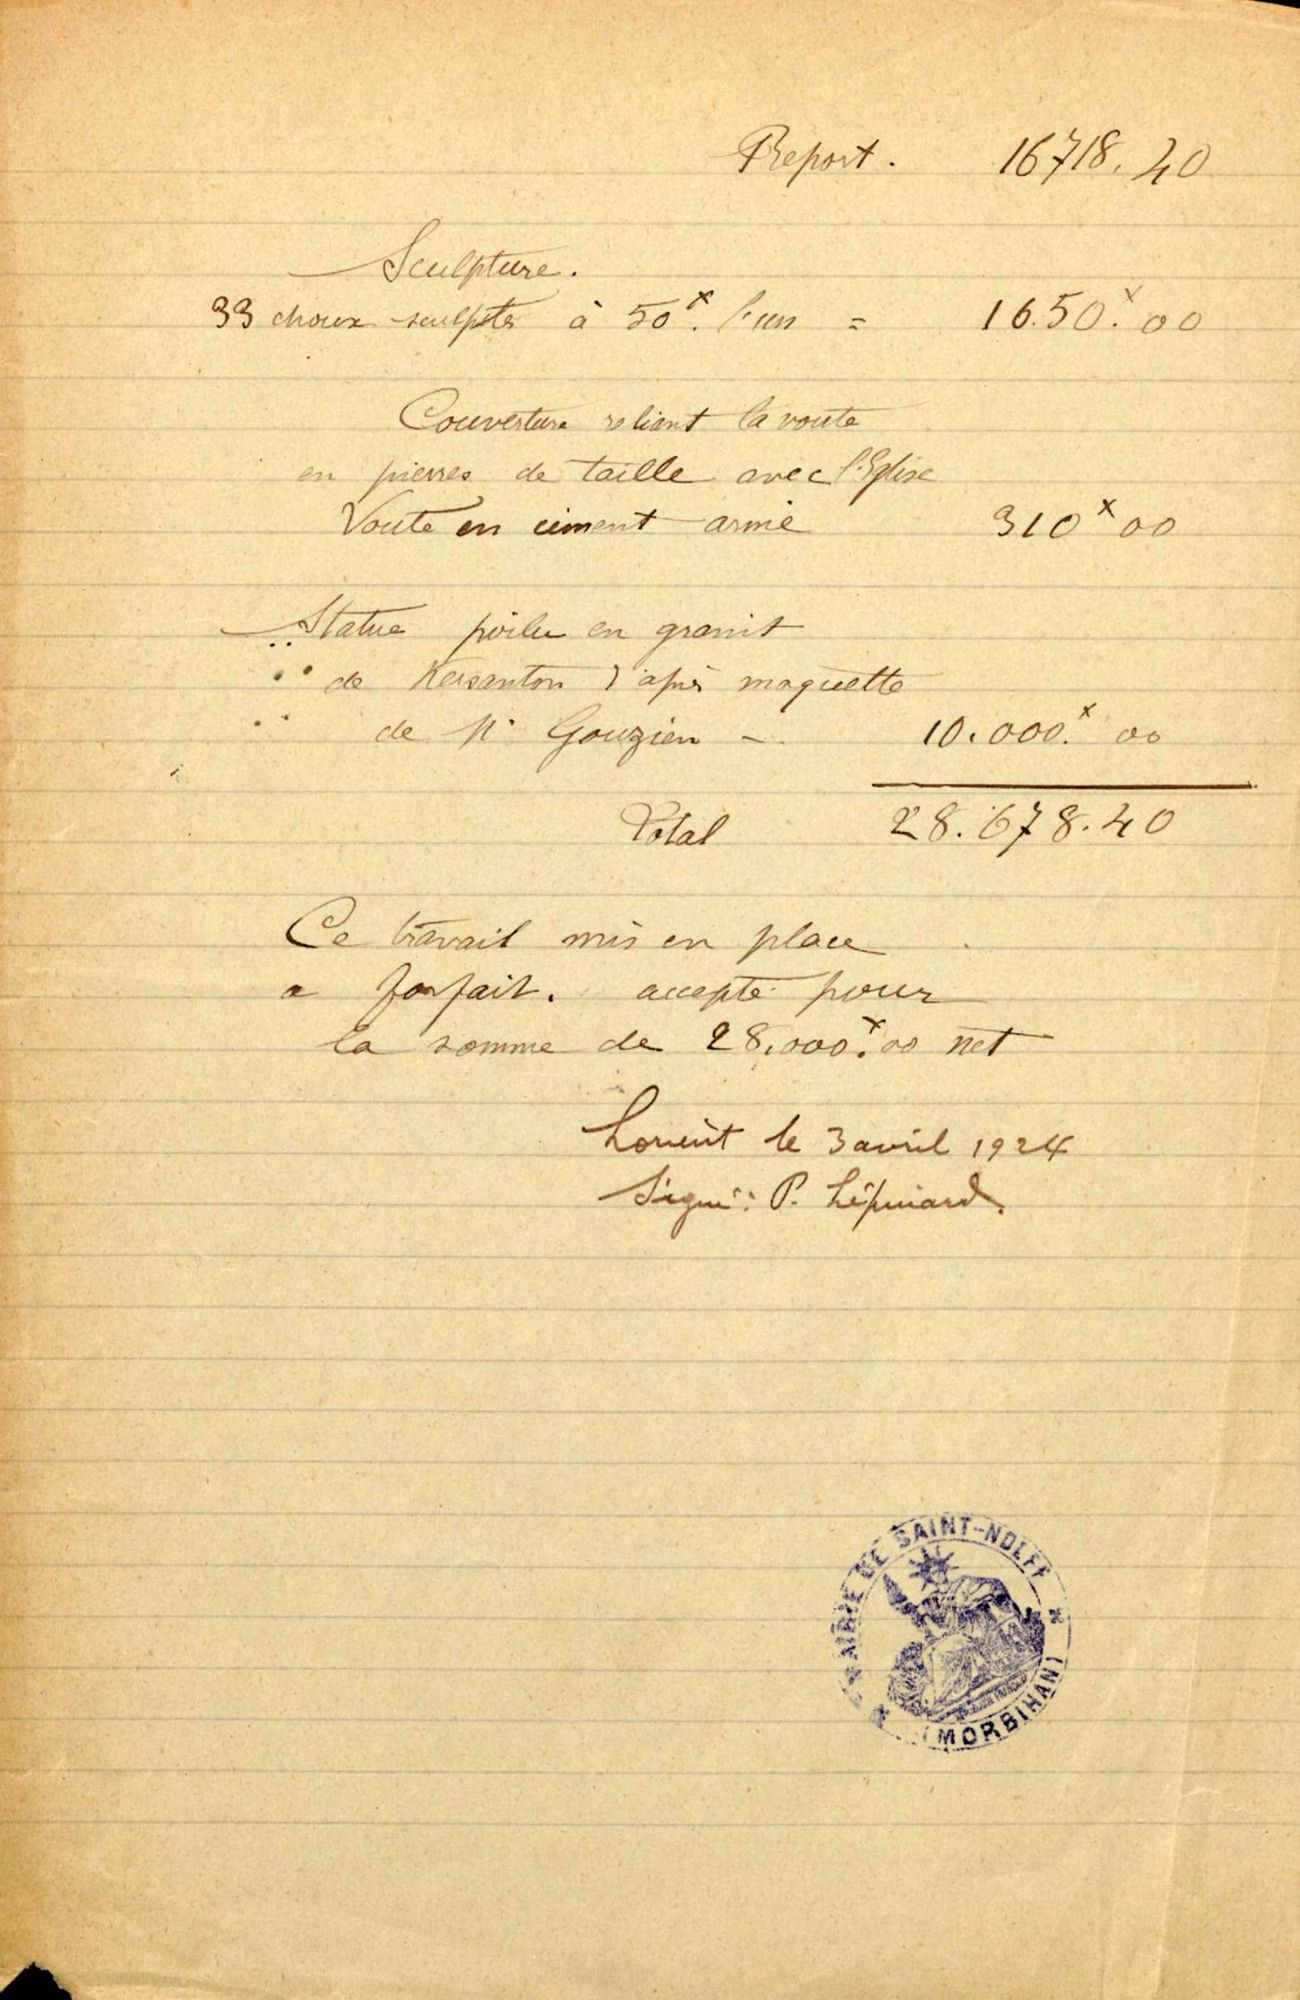 Report. 16718.40
Sculpture.
33 choux sculptés à 50ˣ. l'un = 16.50.ˣ 00
Couverture reliant la voute
en pierres de taille avec l'Eglise
Voute en ciment armé 310ˣ 00
Statue poilu en granit
de Kersanton d'après maquette
de Mʳ Gouzien - 10.000.ˣ 00
Total 28.678.40
Ce travail mis en place
a forfait. accepté pour
la somme de 28.000.ˣ 00 net
Lorient le 3 avril 1924
Signé: P. Lépinard.
MAIRIE DE SAINT-NOLFF
(MORBIHAN)